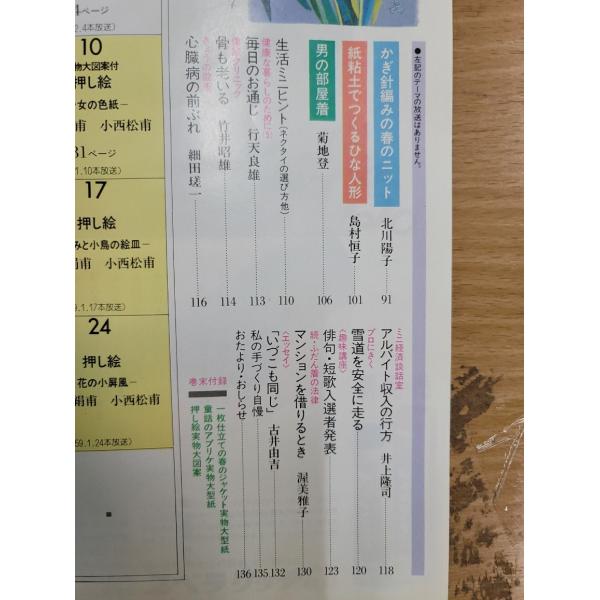 ●左記のテーマの放送はありません。
かぎ針編みの春のニット 北川陽子 91
紙粘土でつくるひな人形 島村恒子 101
男の部屋着 菊地登 106
生活ミニヒント(ネクタイの選び方他) 110
健康な暮らしのために⑤
毎日のお通じ 行天良雄 113
骨も老いる 竹井昭雄 114
心臓病の前ぶれ 細田瑳一 116
ミニ経済談話室
アルバイト収入の行方 井上隆司 118
プロにきく
雪道を安全に走る 120
〈趣味講座〉
俳句・短歌入選者発表 123
続・ふだん着の法律
マンションを借りるとき 渥美雅子 130
〈エッセイ〉
「いづこも同じ」 古井由吉 132
私の手づくり自慢 135
おたより・おしらせ 136
巻末付録
一枚仕立ての春のジャケット実物大型紙
童話のアプリケ実物大型紙
押し絵実物大図案
4ページ
2.4本放送)
10
物大図案付
押し絵
女の色紙―
甫 小西松甫
31ページ
1.10本放送)
17
押し絵
みと小鳥の絵皿―
絹甫 小西松甫
9.1.17本放送)
24
押し絵
花の小屏風―
絹甫 小西松甫
59.1.24本放送)